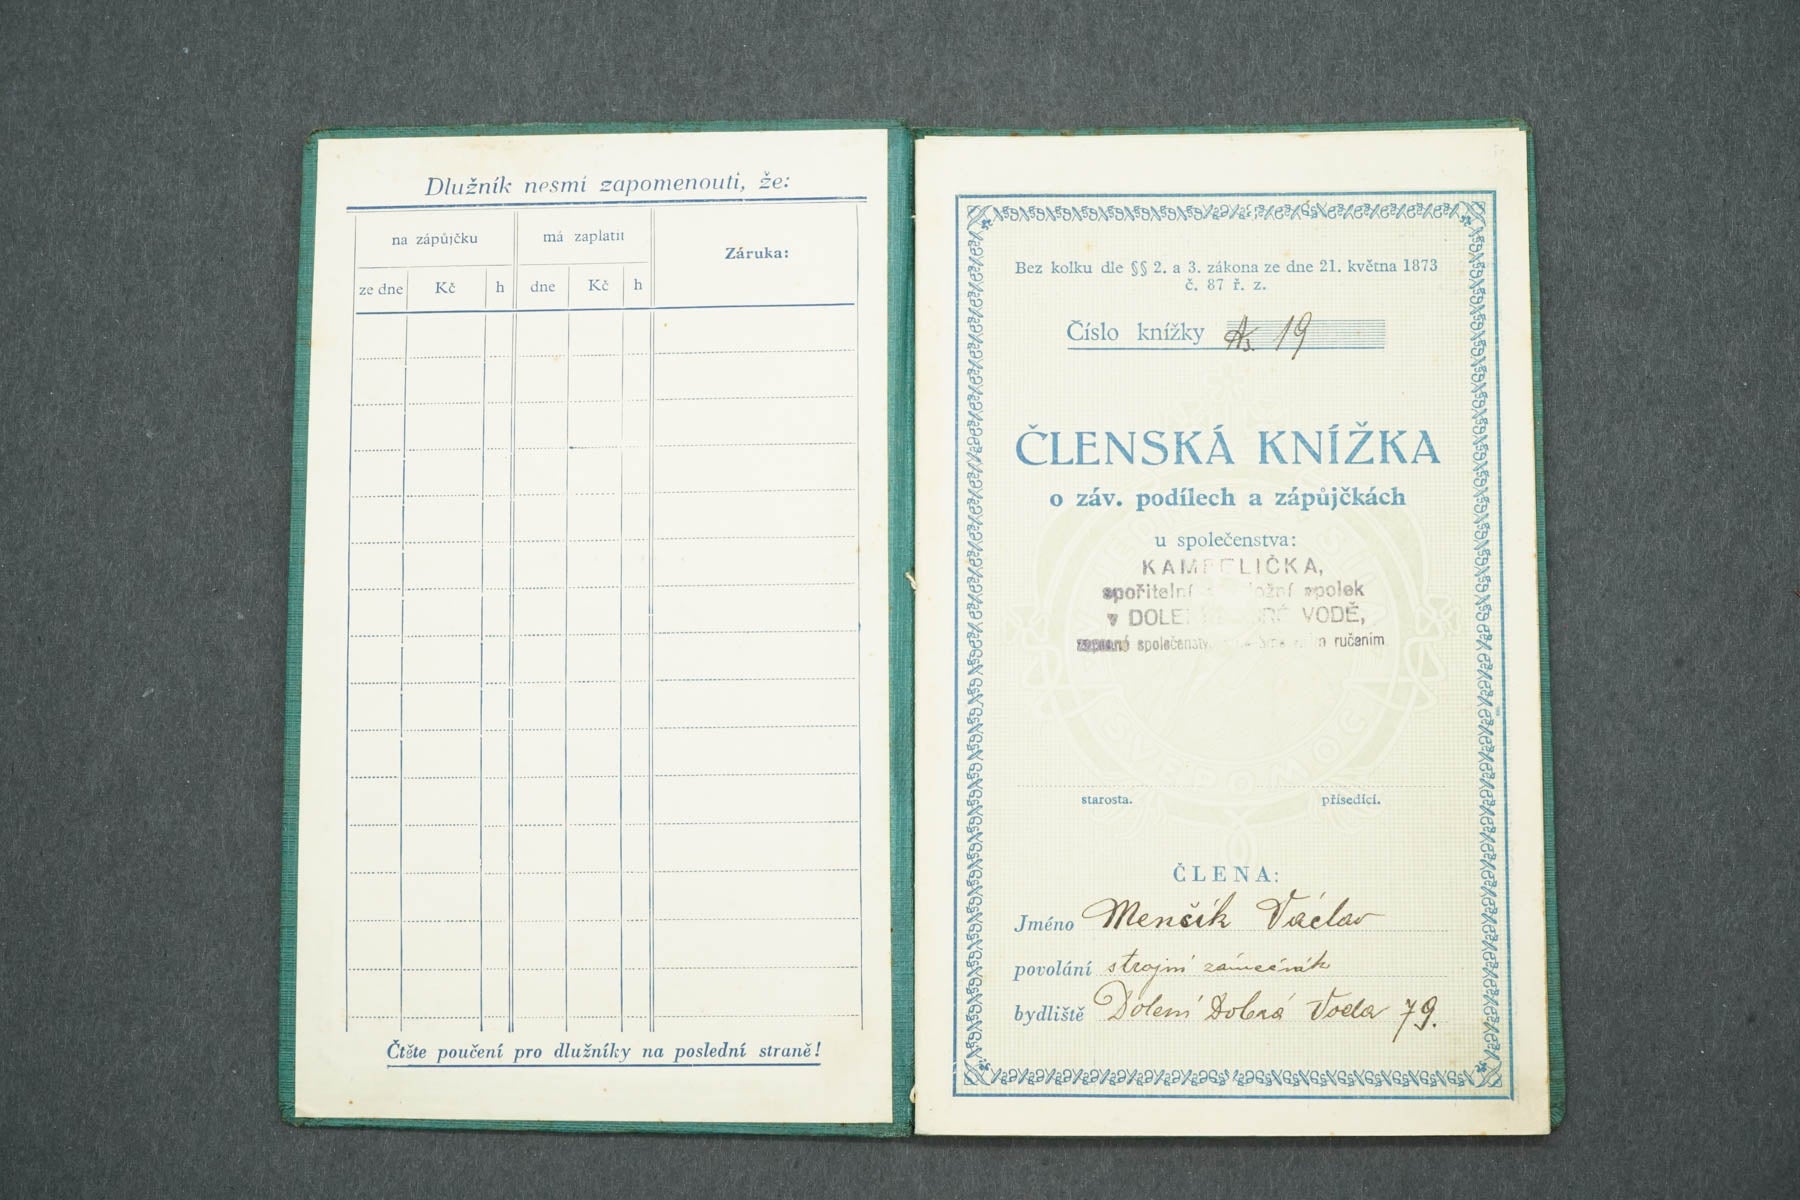 Dlužník nesmí zapomenouti, že:
na zápůjčku
má zaplatit
Záruka:
ze dne Kč h dne Kč h
Čtěte poučení pro dlužníky na poslední straně!
Bez kolku dle §§ 2. a 3. zákona ze dne 21. května 1873
č. 87 ř. z.
Číslo knížky 19
ČLENSKÁ KNÍŽKA
o záv. podílech a zápůjčkách
u společenstva:
KAMPELIČKA,
spořitelní spolek
v VODĚ,
ručením
SVÉPOMOC
starosta. přísedící.
ČLENA:
Jméno Menčík Václav
povolání strojní zámečník
bydliště Dolení Dobrá Voda 79.